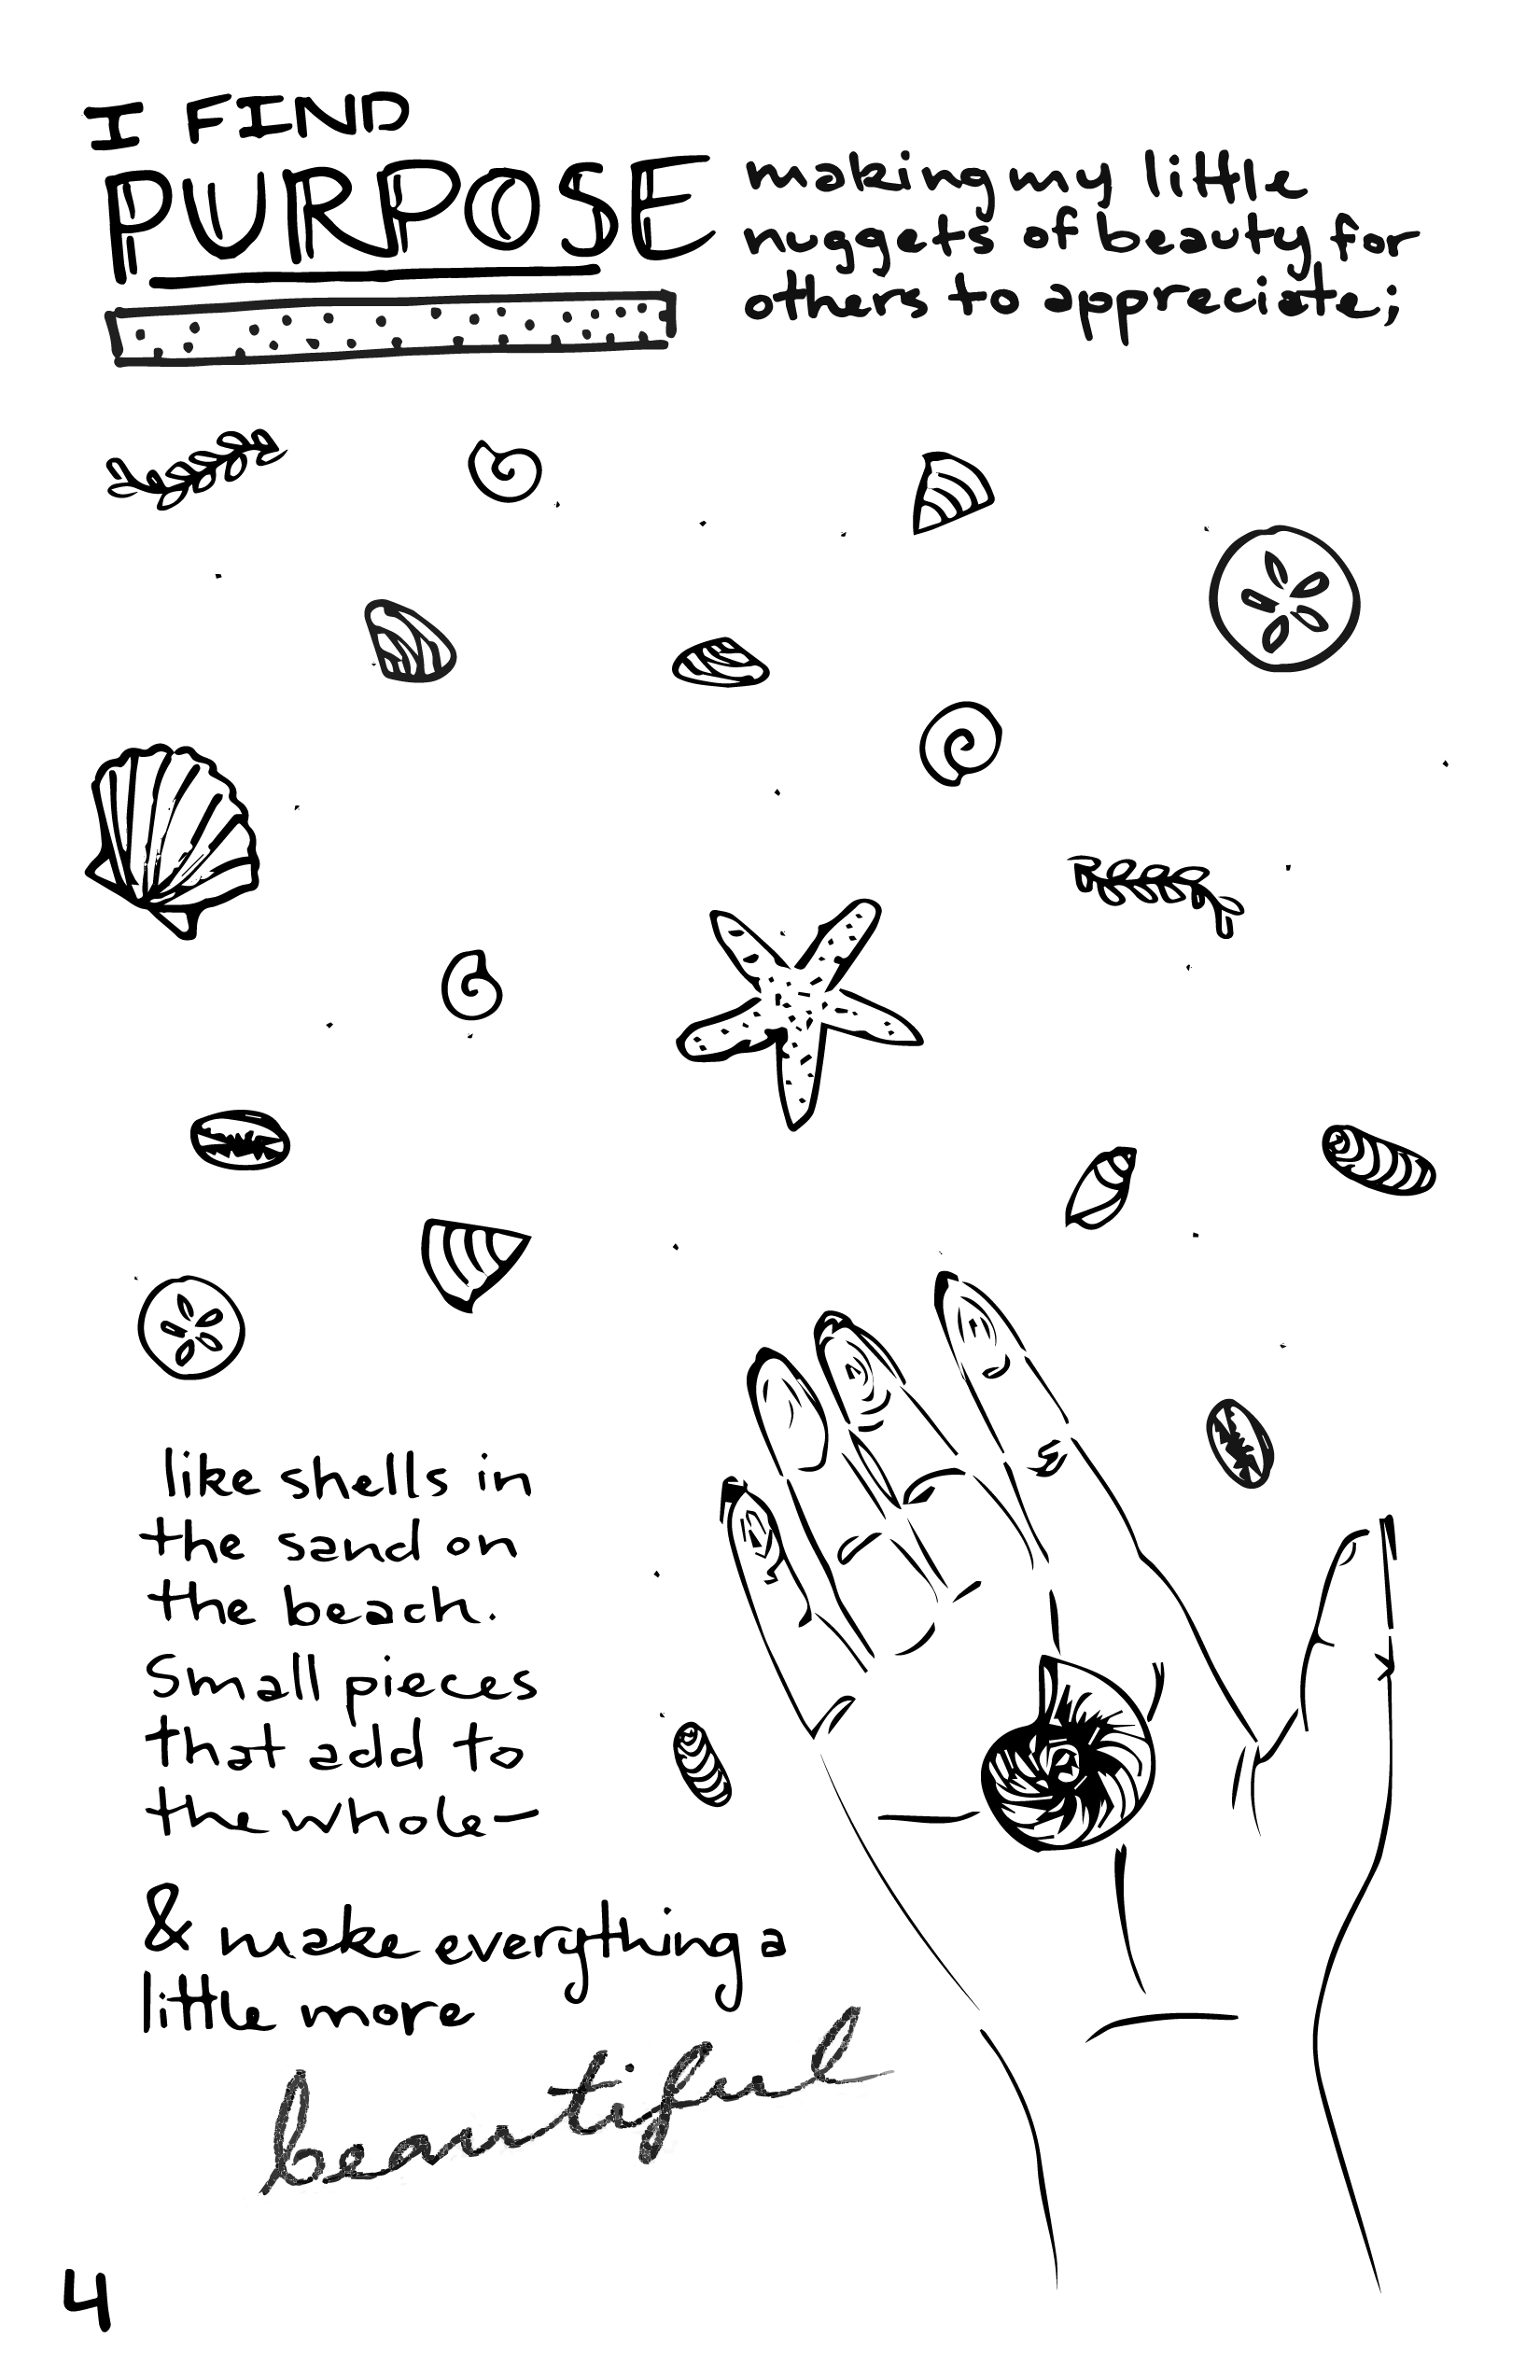 I FIND
PURPOSE
making my little
nuggets of beauty for
others to appreciate;
like shells in
the sand on
the beach.
Small pieces
that add to
the whole—
& make everything a
little more
beautiful
4